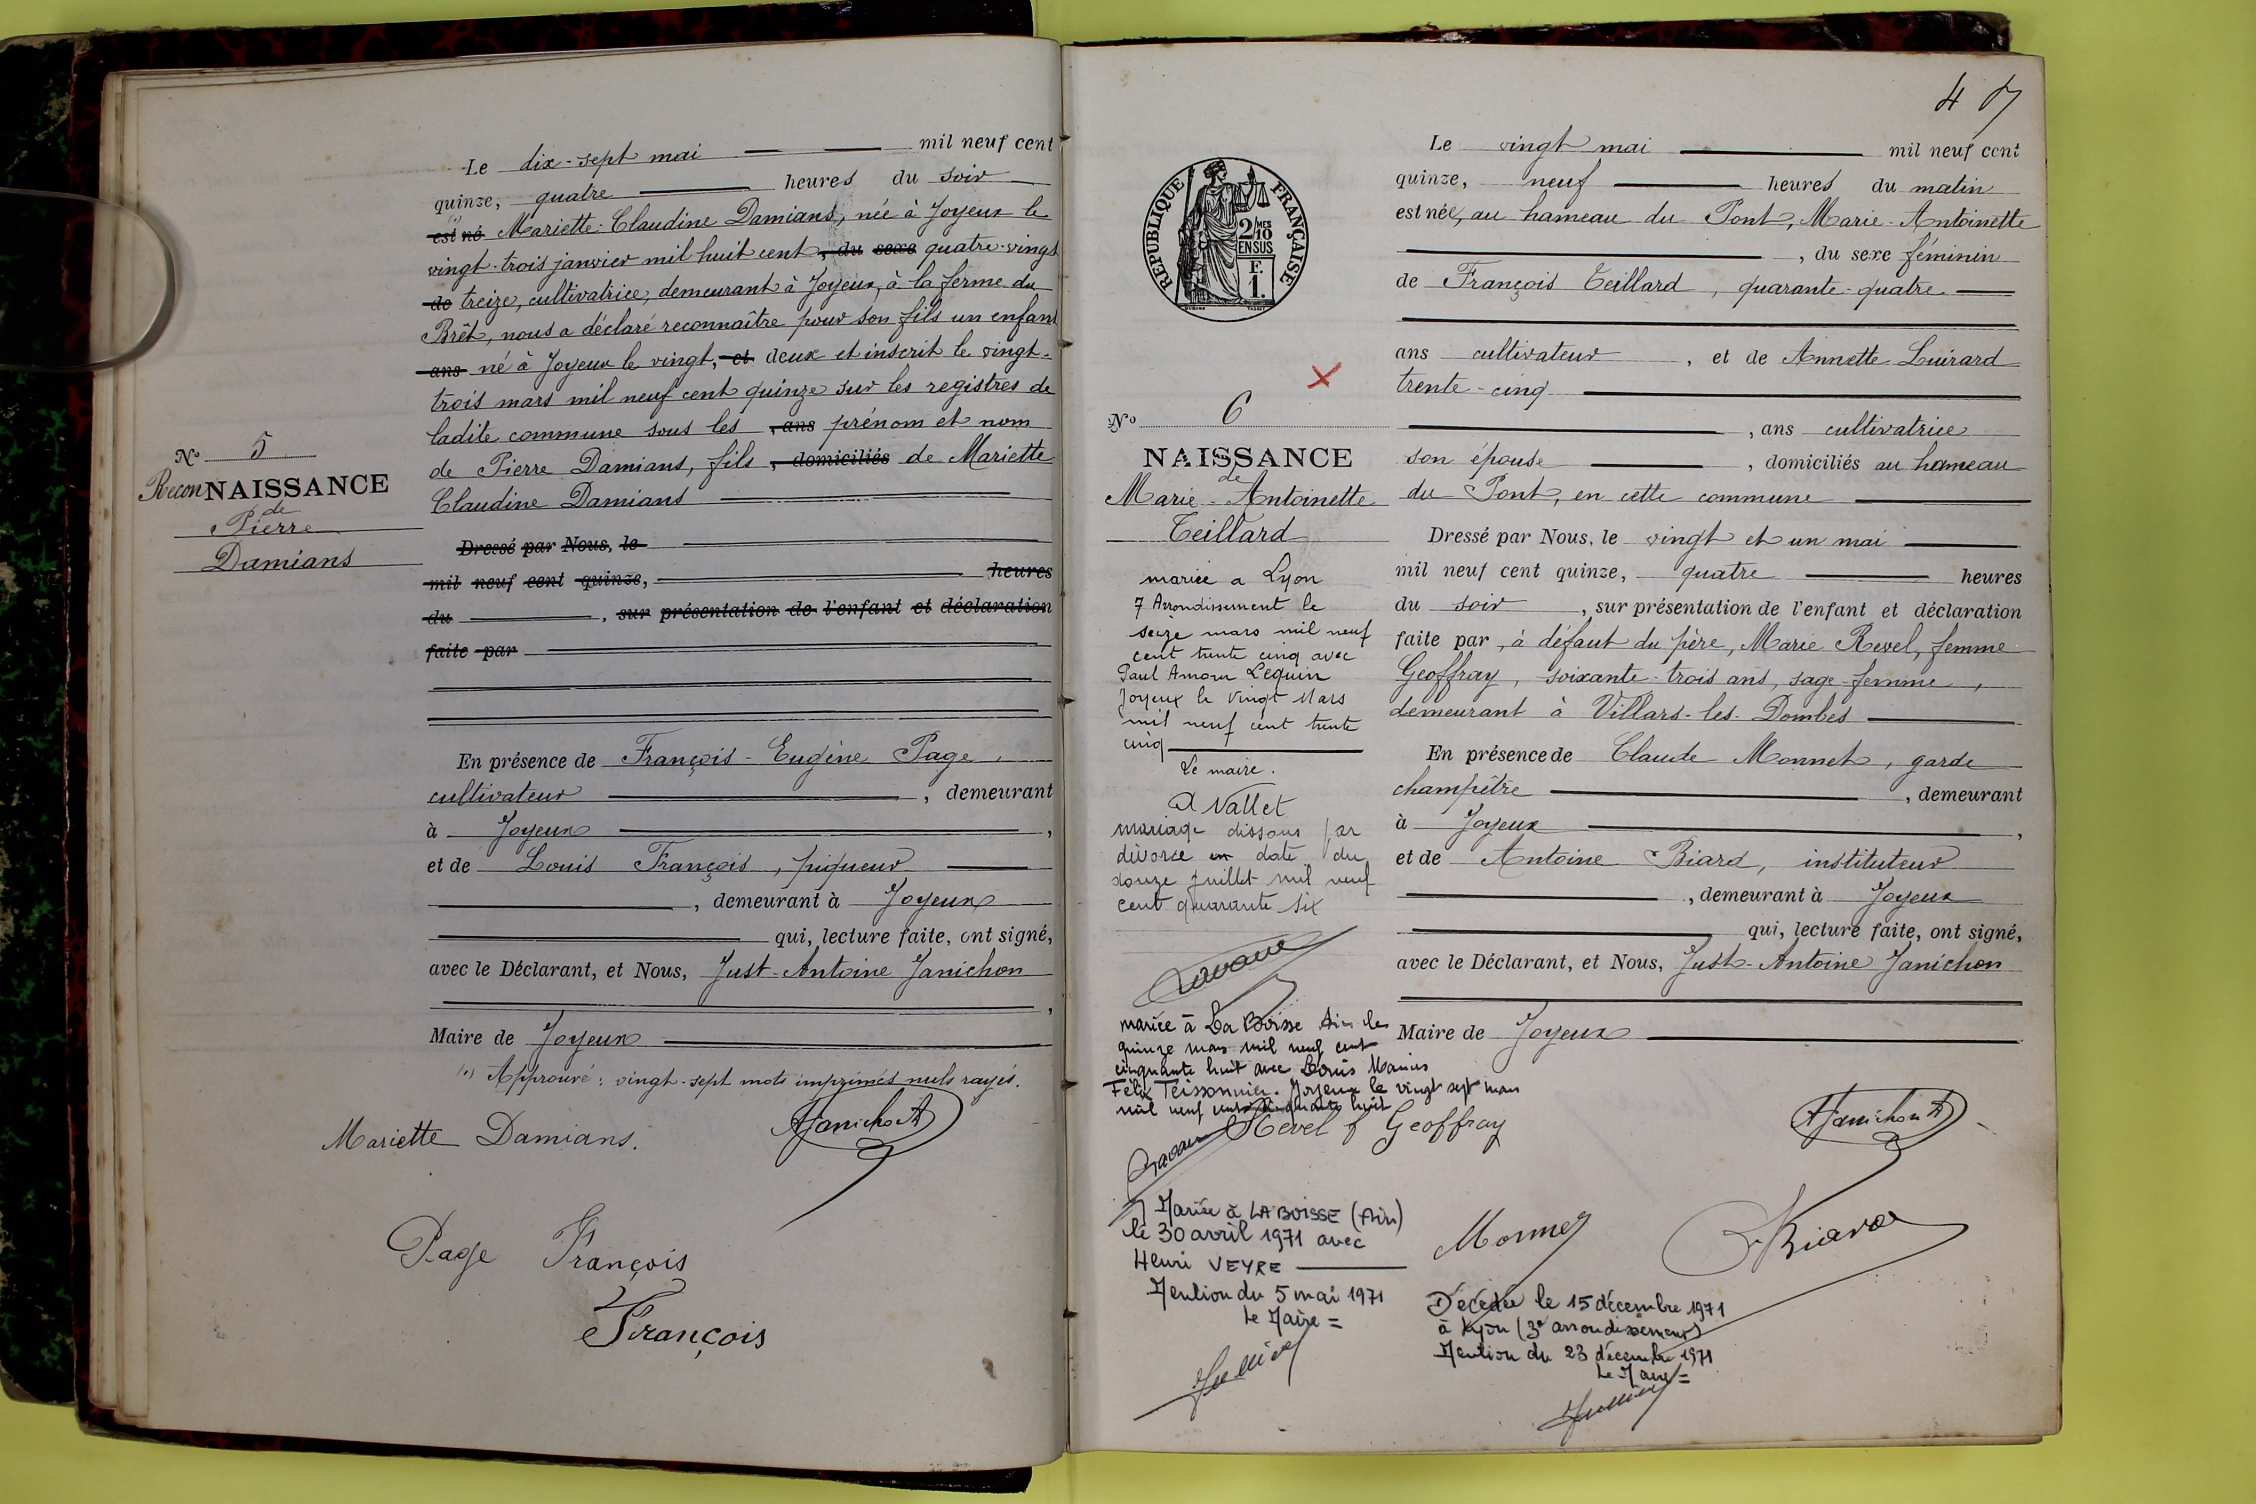 Le dix-sept mai mil neuf cent
quinze, quatre heures du soir
(1) est né Mariette-Claudine Damians, née à Joyeux le
vingt-trois janvier mil huit cent, du sexe quatre-vingt
de treize, cultivatrice, demeurant à Joyeux, à la ferme du
Brêt, nous a déclaré reconnaître pour son fils un enfant
ans né à Joyeux le vingt, et deux et inscrit le vingt-
trois mars mil neuf cent quinze sur les registres de
ladite commune sous les , ans prénom et nom
de Pierre Damians, fils , domiciliés de Mariette
Claudine Damians
No 5
ReconNAISSANCE
de
Pierre
Damians
Dressé par Nous, le
mil neuf cent quinze, heures
du , sur présentation de l'enfant et déclaration
faite par
En présence de François-Eugène Page,
cultivateur , demeurant
à Joyeux ,
et de Louis François, piqueur
, demeurant à Joyeux
qui, lecture faite, ont signé,
avec le Déclarant, et Nous, Just-Antoine Janichon
,
Maire de Joyeux
(1) Approuvé : vingt-sept mots imprimés nuls rayés.
Mariette Damians. AJanichon
Page François
François
4
RÉPUBLIQUE FRANÇAISE
2/10 MES
EN SUS
F.
1.
No 6
NAISSANCE
de
Marie-Antoinette
Teillard
mariée a Lyon
7 Arrondissement le
seize mars mil neuf
cent trente cinq avec
Paul Amour Lequin
Joyeux le Vingt Mars
mil neuf cent trente
cinq
Le maire.
A Vallet
mariage dissous par
divorce en date du
douze Juillet mil neuf
cent quarante six
mariée à La Boisse Ain le
quinze mars mil neuf cent
cinquante huit avec Louis Marius
Félix Teissonnier. Joyeux le vingt sept mars
mil neuf cent cinquante huit
Mariée à LA BOISSE (Ain)
le 30 avril 1971 avec
Henri VEYRE
Mention du 5 mai 1971
Le Maire =
Le vingt mai mil neuf cent
quinze, neuf heures du matin
est née, au hameau du Pont, Marie-Antoinette
, du sexe féminin
de François Teillard, quarante-quatre
ans cultivateur , et de Annette Luirard
trente-cinq
, ans cultivatrice
son épouse , domiciliés au hameau
du Pont, en cette commune
Dressé par Nous, le vingt et un mai
mil neuf cent quinze, quatre heures
du soir , sur présentation de l'enfant et déclaration
faite par, à défaut du père, Marie Revel, femme
Geoffray, soixante-trois ans, sage-femme,
demeurant à Villars-les-Dombes
En présence de Claude Monnet, garde
champêtre , demeurant
à Joyeux ,
et de Antoine Biard, instituteur
, demeurant à Joyeux
qui, lecture faite, ont signé,
avec le Déclarant, et Nous, Just-Antoine Janichon
Maire de Joyeux
Revel f Geoffray AJanichon
Monnet Biard
Décédée le 15 décembre 1971
à Lyon (3e arrondissement)
Mention du 23 décembre 1971
Le Maire =